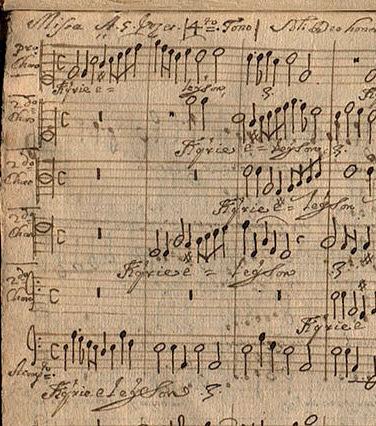 Missa A. 5. 4to. Tono
pro. Choro
Kyrie e = leyson
2.do Choro
Kyrie e = leyson
2.do Choro
Kyrie e = leyson
2.do Choro
Kyrie e = leyson
2.do Choro
Kyrie
Kyrie eleyson